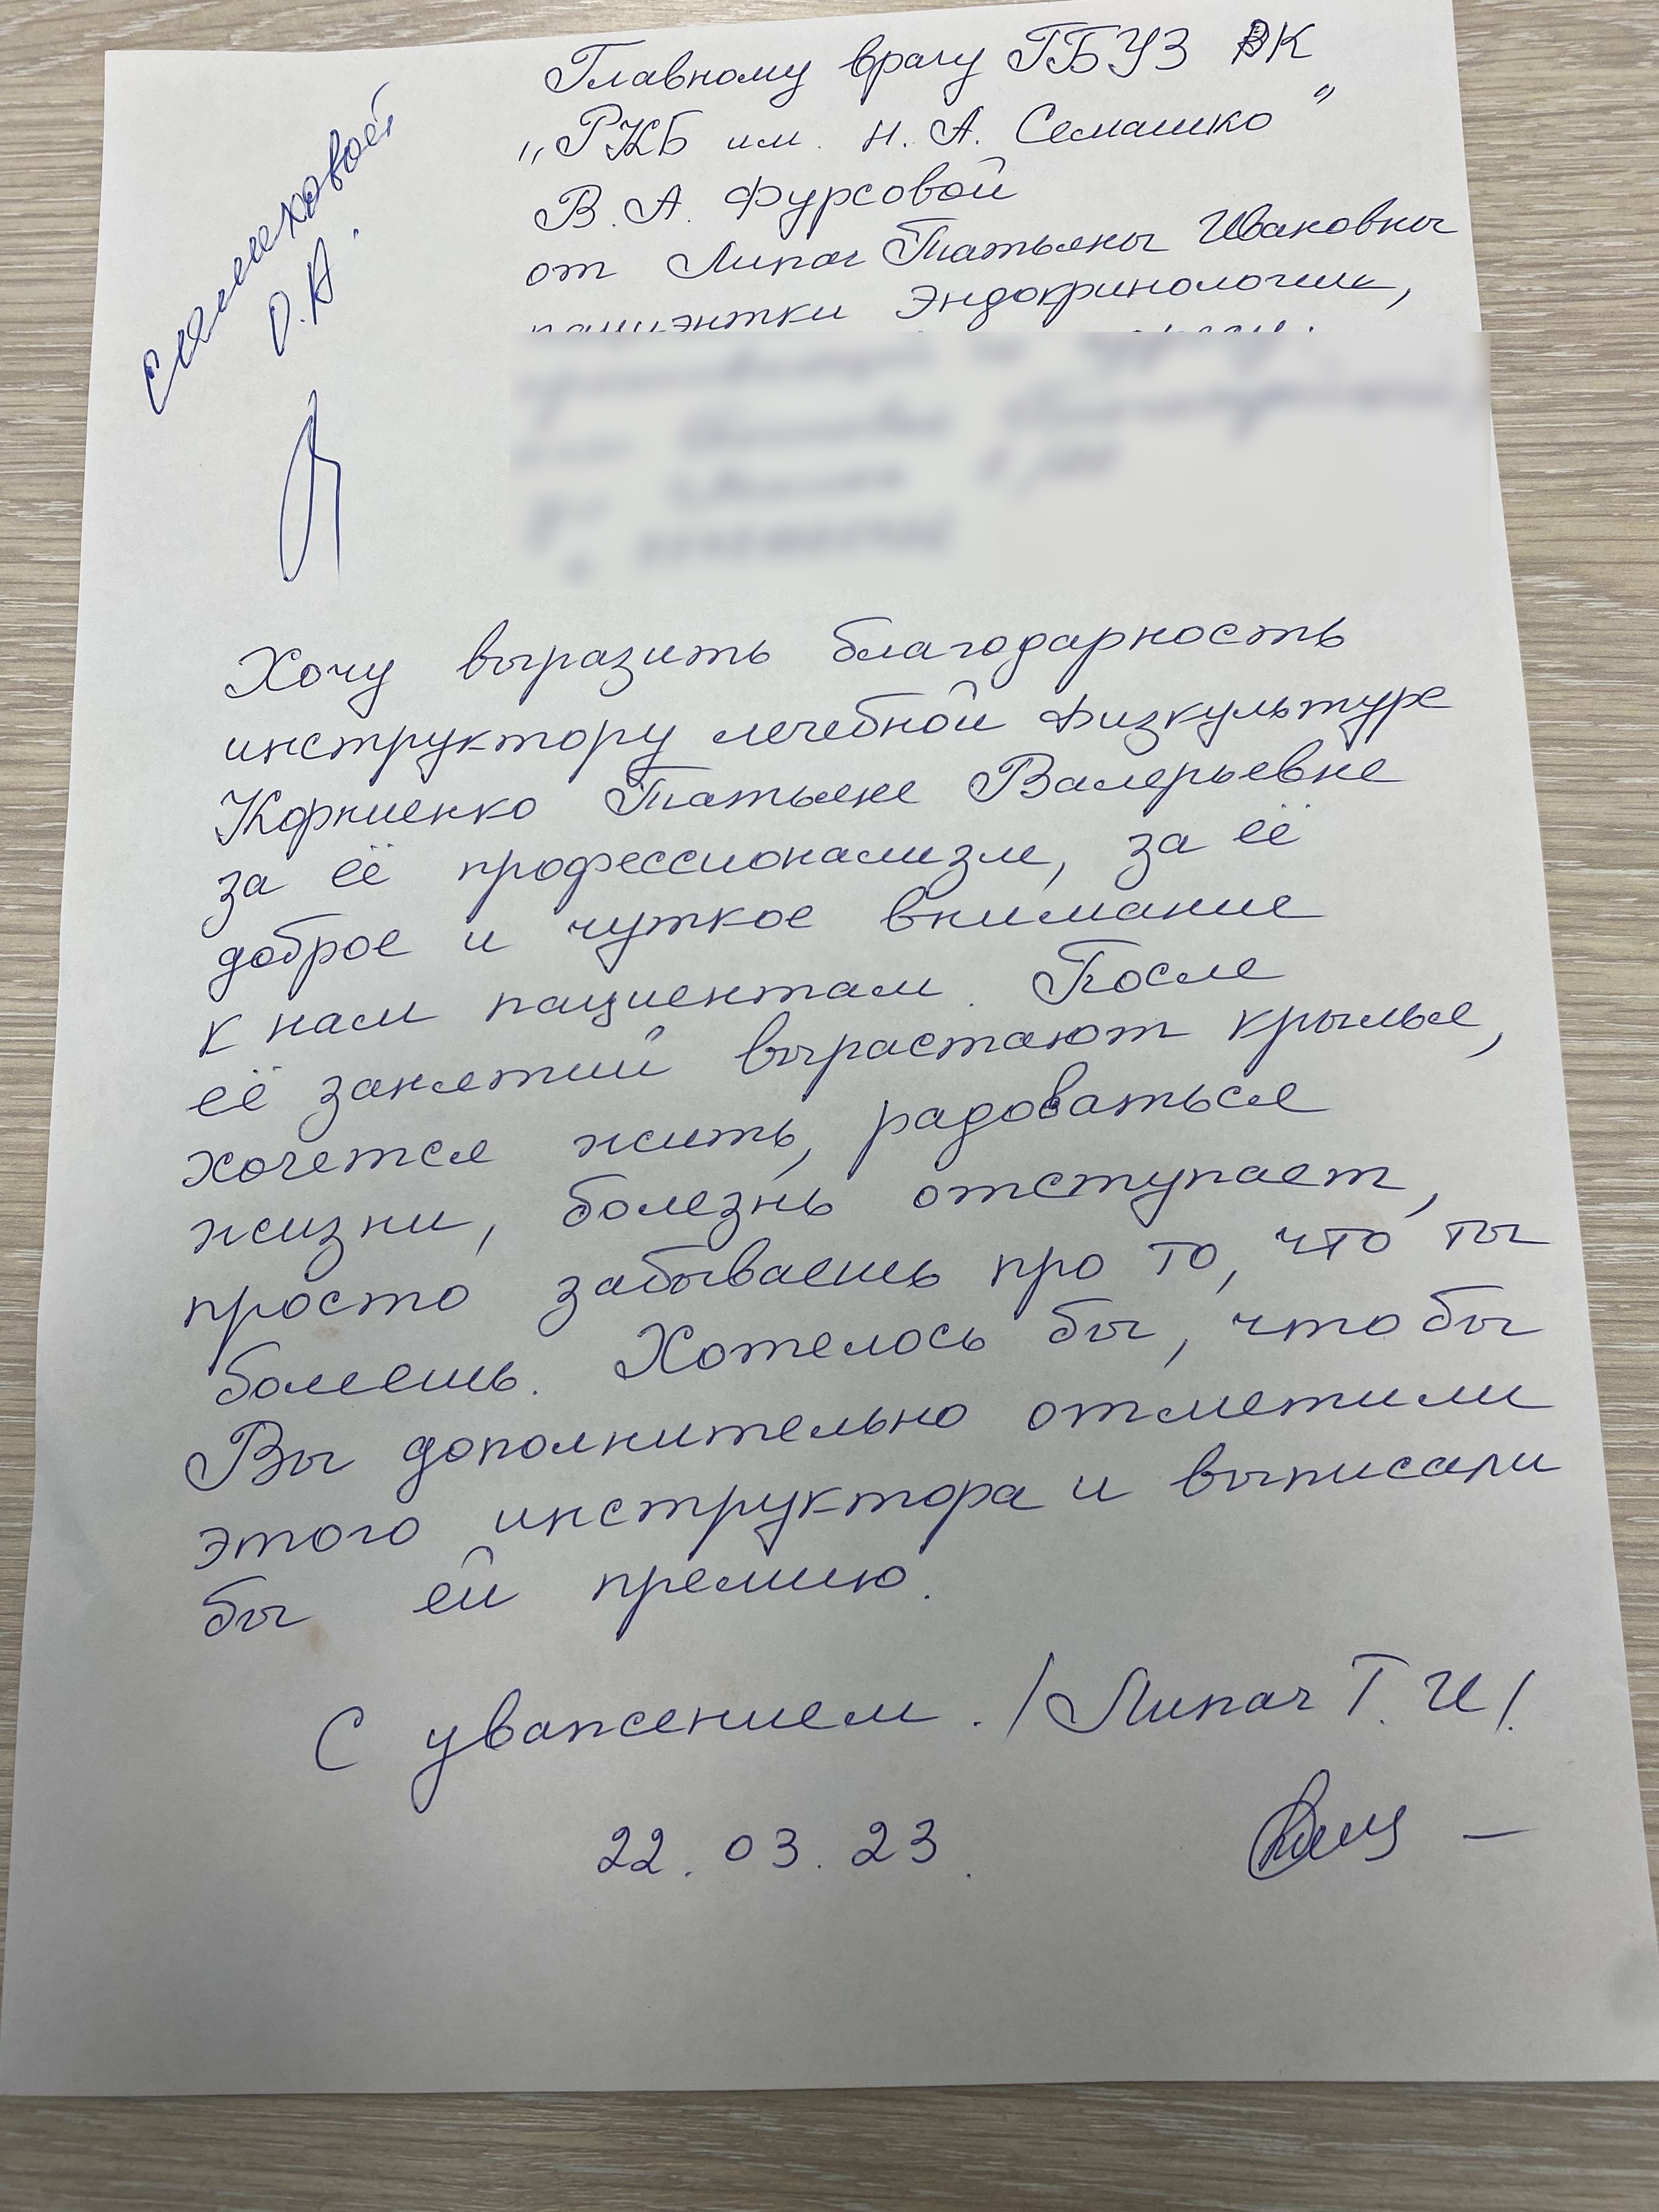 Главному врачу ГБУЗ РК
„РКБ им. Н. А. Семашко”
В. А. Фурсовой
от Липач Татьяны Ивановны
пациэнтки Эндокринологии,
О. А.
Хочу выразить благодарность
инструктору лечебной физкультуре
Корниенко Татьяне Валерьевне
за её профессионализм, за её
доброе и чуткое внимание
к нам пациентам. После
её занятий вырастают крылья,
хочется жить, радоваться
жизни, болезнь отступает,
просто забываешь про то, что ты
болеешь. Хотелось бы, что бы
Вы дополнительно отметили
этого инструктора и выписали
бы ей премию.
С уважением. /Липач Т. И/.
22.03.23.